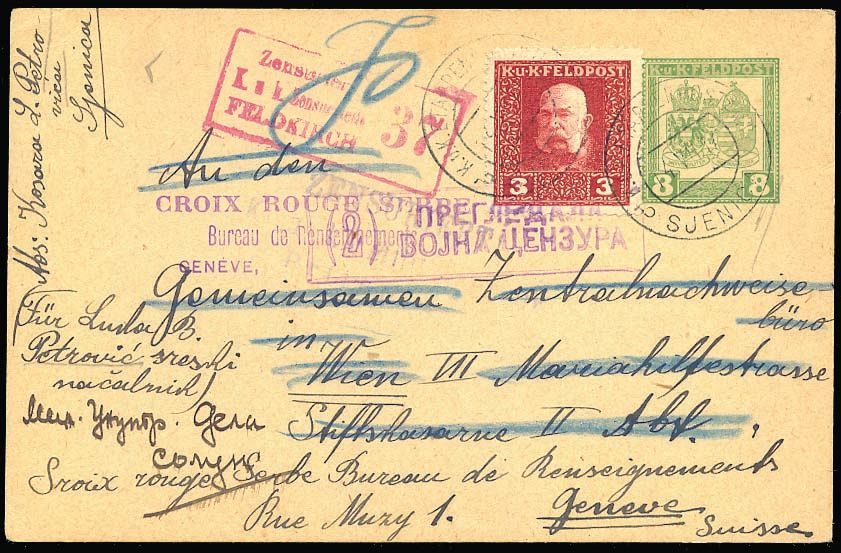 Abs: Kosara L. Petro-
vića
Sjenica
Zensuriert
K. u. k. Zensurstelle
FELDKIRCH
37
K.u.K.FELDPOST
3 3
K.u.K.FELDPOST
8 8
SJENICA
An den
CROIX ROUGE SERBE
Bureau de Renseignements
GENÈVE,
(2) ПРЕГЛЕДАЛА
ВОЈНА ЦЕНЗУРА
Gemeinsamen Zentralnachweise
büro
in
Wien III Mariahilfestrasse
Stiftskasarne II Abt.
Für Luda B.
Petrović sreski
načalnik
Мин. Унутр. Дела
Солун
Sroix rouge Serbe Bureau de Renseignements
Rue Muzy 1. Geneve
Suisse